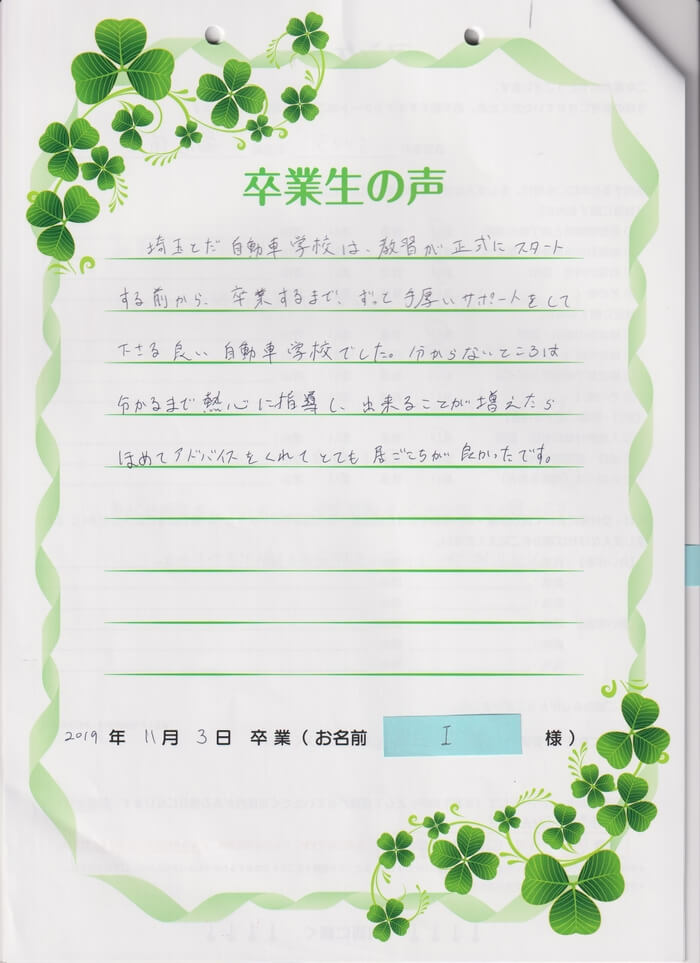 卒業生の声
埼玉とだ自動車学校は、教習が正式にスタート
する前から、卒業するまで、ずっと手厚いサポートをして
下さる良い自動車学校でした。分からないところは
分かるまで熱心に指導し、出来ることが増えたら
ほめてアドバイスをくれてとても居ごこちが良かったです。
2019年 11月 3日 卒業(お名前 I 様)